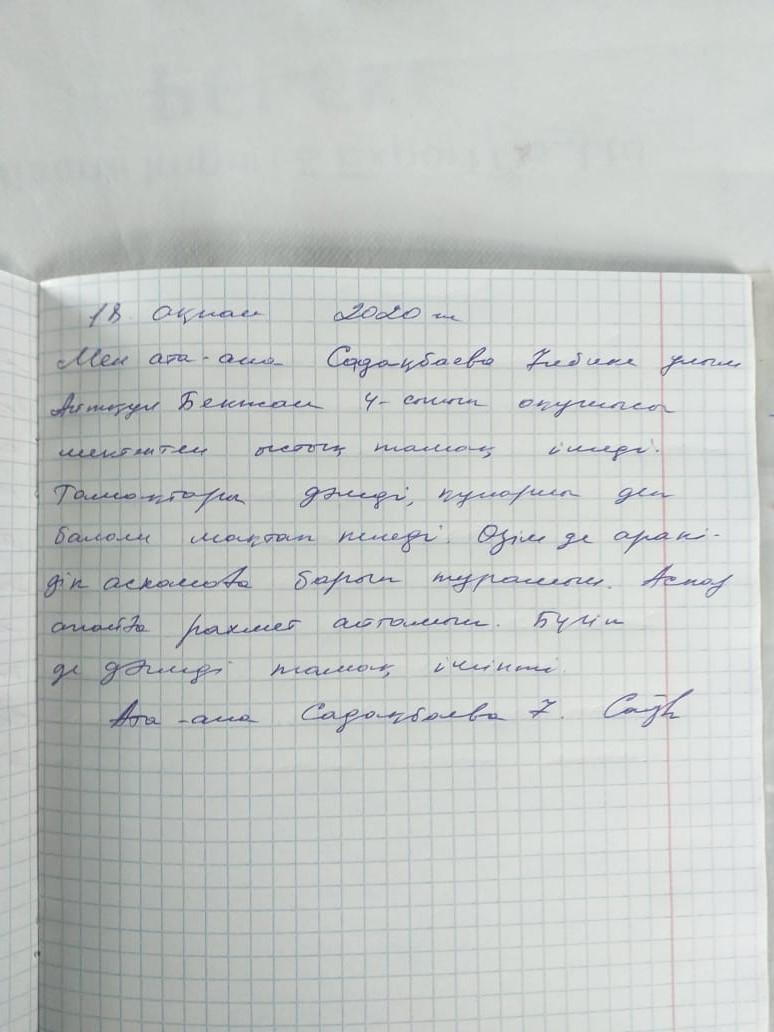 18 ақпан 2020 ж
Мен ата-ана Садақбаева Зибине ұлым
Айтқул Бекжан 4-сынып оқушысы
мектептен ыстық тамақ ішеді.
Тамақтары дәмді, құнарлы деп
балам мақтап келеді. Өзім де арагі-
дік асханаға барып тұрамын. Аспаз
апайға рахмет айтамын. Бүгін
де дәмді тамақ ішіпті.
Ата-ана Садақбаева З.